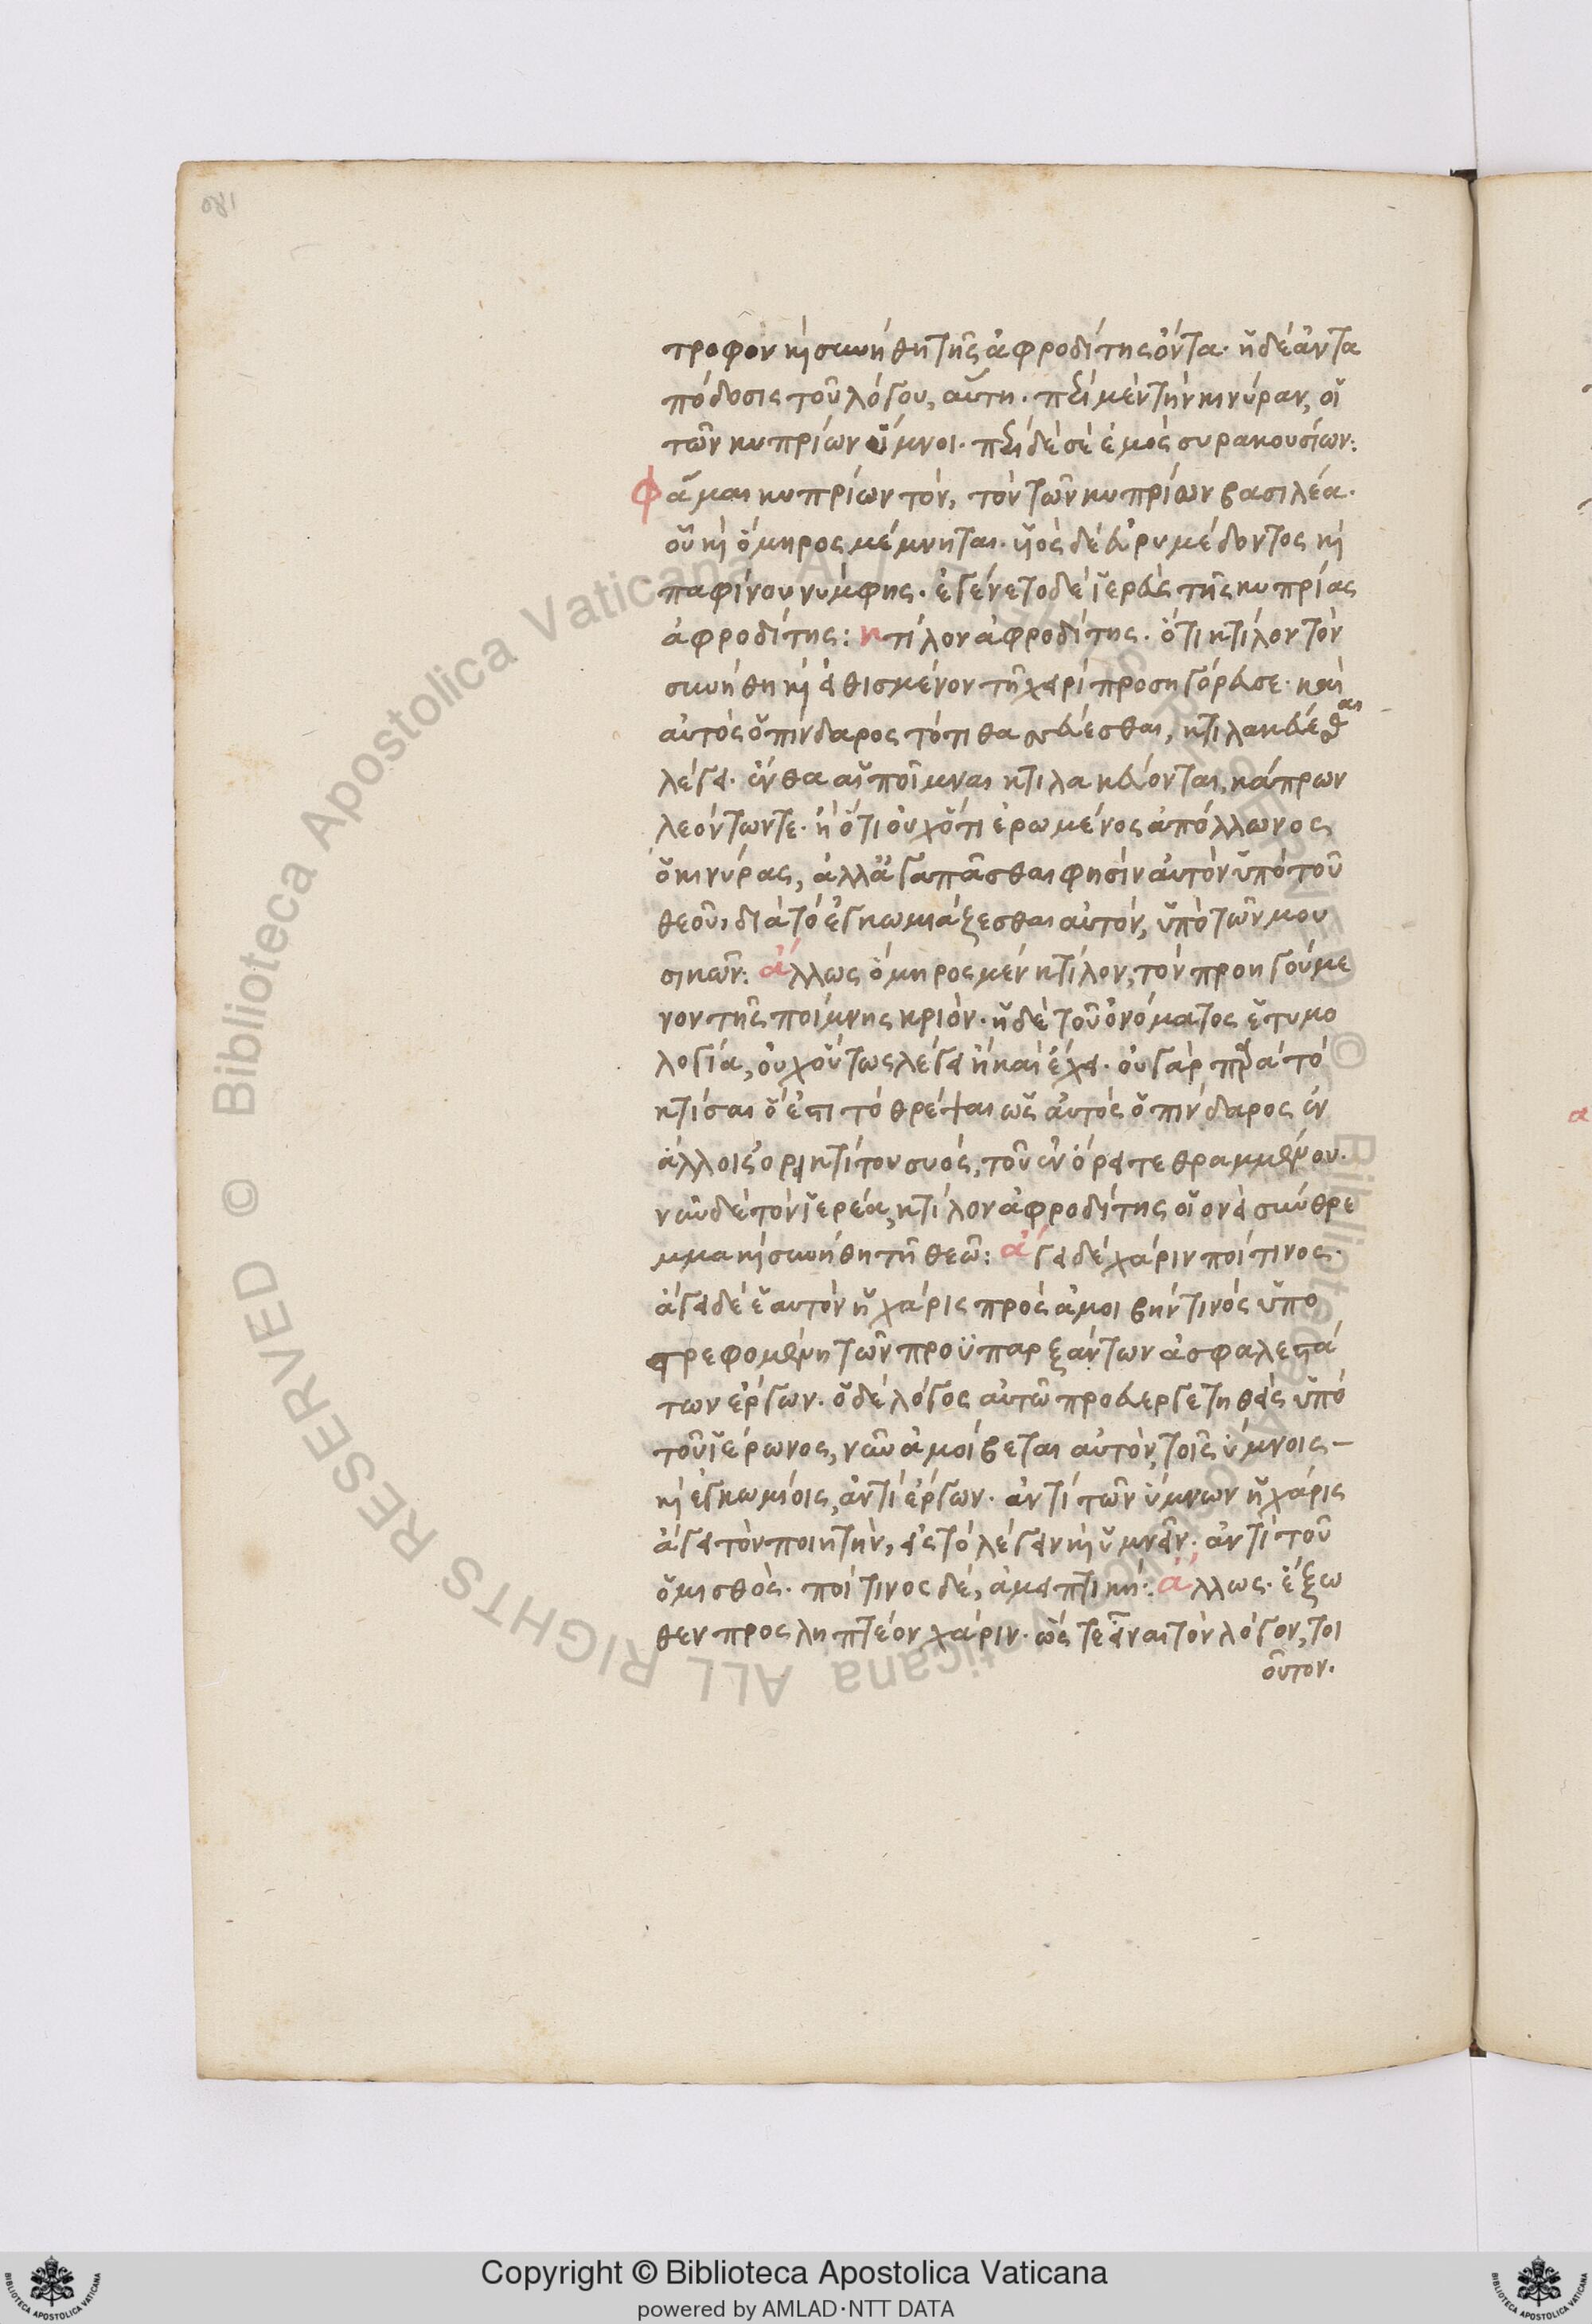 τροφον κὶ συνήθη τῆς ἀφροδίτης ὄντα· ἡ δὲ ἀντα
πόδοσις τοῦ λόγου, αὕτη· περὶ μὲν τὴν κινύραν, οἱ
τῶν κυπρίων ὕμνοι· περὶ δὲ σὲ ἐμὸς συρακουσίων:
φᾶμαι κυπρίων τὸν, τὸν τῶν κυπρίων βασιλέα·
οὗ κὶ ὅμηρος μέμνηται· υἱὸς δὲ εὐρυμέδοντος κὶ
παφίνου νύμφης· ἐγένετο δὲ ἱερεὺς τῆς κυπρίας
ἀφροδίτης: κτίλον ἀφροδίτης· ὅτι κτίλον τὸν
συνήθη κὶ εἰθισμένον τῇ χειρὶ προσηγόρευσε· καὶ
αὐτὸς ὁ πίνδαρος τὸ τιθασσεύεσθαι, κτιλακεύεσθαι
λέγει· ἔνθα αἱ ποῖμναι κτιλακεύονται, κάπρων
λεόντων τε· ἢ ὅτι οὐχ ὅτι ἐρωμένος ἀπόλλωνος
ὁ κινύρας, ἀλλ' ἀγαπᾶσθαι φησὶν αὐτὸν ὑπὸ τοῦ
θεοῦ, διὰ τὸ ἐγκωμιάζεσθαι αὐτὸν, ὑπὸ τῶν μου
σικῶν: ἄλλως ὅμηρος μὲν κτίλον, τὸν προηγούμε
νον τῆς ποίμνης κριόν· ἡ δὲ τοῦ ὀνόματος ἐτυμο
λογία, οὐχ οὕτως λέγει ἢ καὶ ἔχει· οὐ γὰρ παρὰ τὸ
κτίσαι ὅ ἐστι τὸ θρέψαι ὡς αὐτὸς ὁ πίνδαρος ἐν
ἄλλοις ὀρικτίτου συός, τοῦ ἐν ὄρει τεθραμμένου·
νῦν δὲ τὸν ἱερέα, κτίλον ἀφροδίτης οἱονεὶ σύνθρε
μμα κὶ συνήθη τῇ θεῷ: ἄγει δὲ χάριν ποί τινος·
ἄγει δὲ ἑαυτὸν ἡ χάρις πρὸς ἀμοιβήν τινὸς ὑπο
στρεφομένη τῶν προϋπαρξάντων ἀσφαλεστά
των ἔργων· ὁ δὲ λόγος αὐτῷ προευεργετηθεὶς ὑπὸ
τοῦ ἱέρωνος, νῦν ἀμοίβεται αὐτὸν, τοῖς ὕμνοις –
κὶ ἐγκωμίοις, ἀντὶ ἔργων· ἀντὶ τῶν ὕμνων ἡ χάρις
ἄγει τὸν ποιητὴν, εἰς τὸ λέγειν κὶ ὑμνεῖν· ἀντὶ τοῦ
ὁ μισθὸς· ποί τινος δὲ, ἀμειπτική: ἄλλως· ἔξω
θεν προς ληπτέον χάριν· ὥς τε εἶναι τὸν λόγον, τοι
οῦτον.